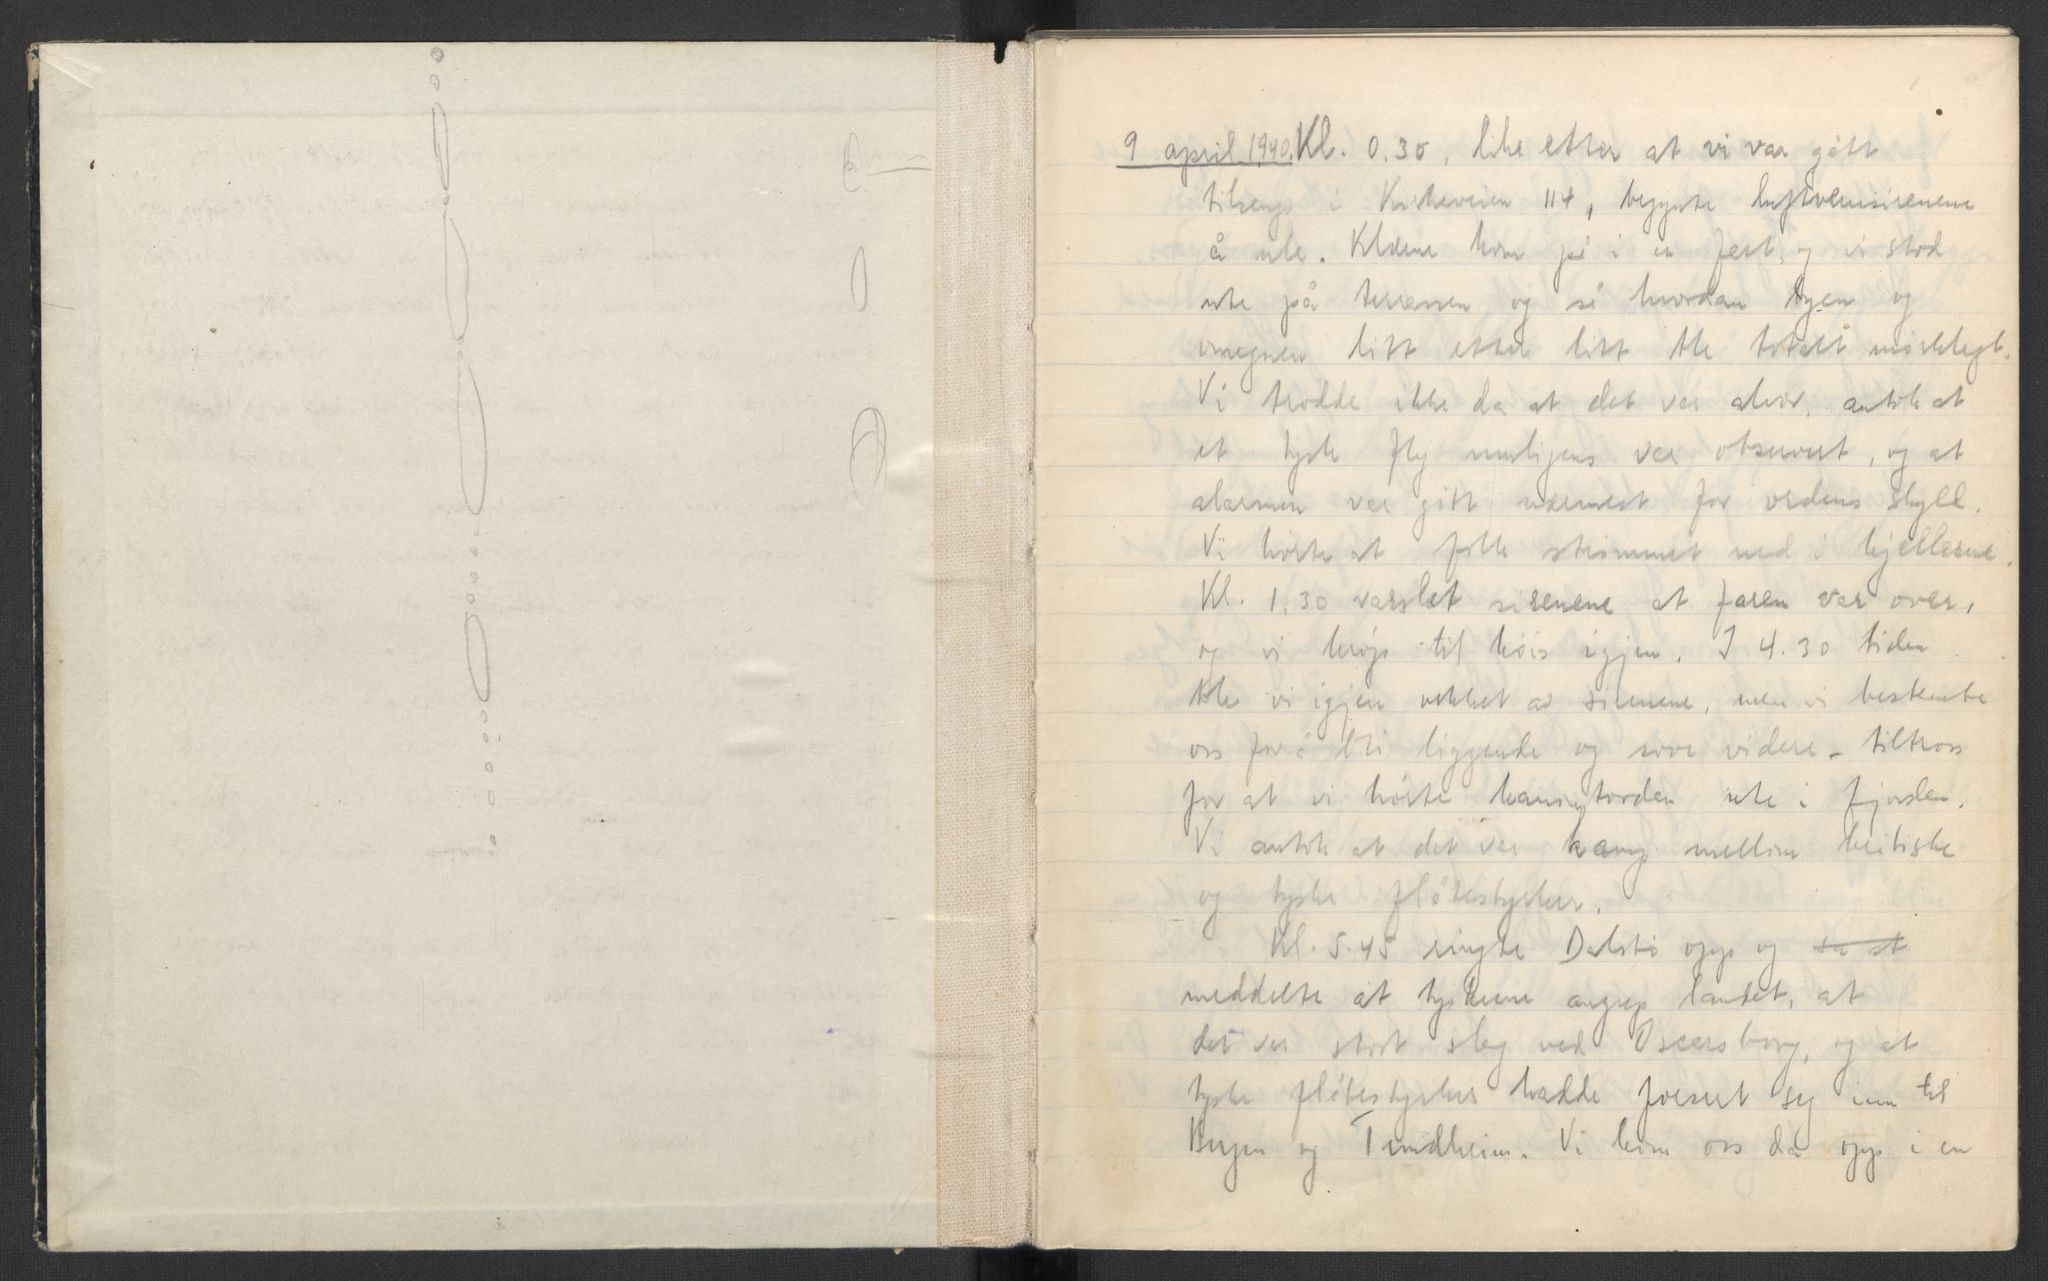 9 april 1940. Kl. 0.30, like etter at vi var gått
tilsengs i Kirkeveien 114, begynte luftvernsirenene
å ule. Klærne kom på i en fart, og vi stod
ute på terrassen og så hvordan byen og
omegnen litt etter litt ble totalt mørklagt.
Vi trodde ikke da at det var alvor, antok at
et tysk fly muligens var observert, og at
alarmen var gitt nærmest for ordens skyld.
Vi hørte at folk strømmet ned i kjellerne.
Kl. 1.30 varslet sirenene at faren var over,
og vi krøp til køis igjen. I 4.30 tiden
ble vi igjen vekket av sirenene, men vi bestemte
oss for å bli liggende og sove videre - tiltross
for at vi hørte kanontorden ute i fjorden.
Vi antok at det var kamp mellom britiske
og tyske flåtestyrker.
Kl. 5.45 ringte Dalstø opp og sa at
meddelte at tyskerne angrep landet, at
det var stort slag ved Oscarsborg, og at
tyske flåtestyrker hadde forsert seg inn til
Bergen og Trondheim. Vi kom oss da opp i en